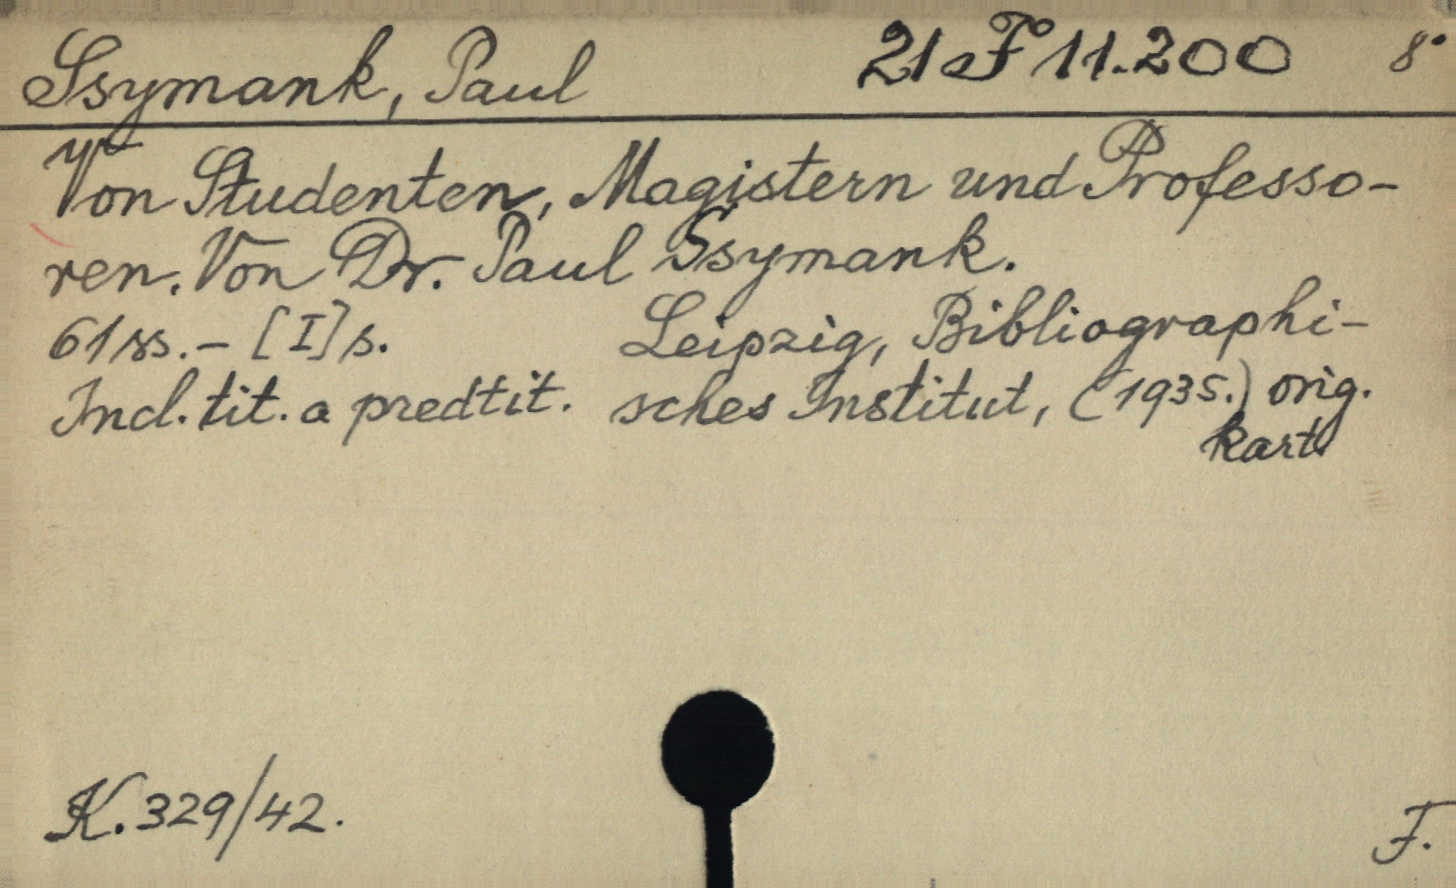 Ssymank, Paul 21 F 11.200 8°
Von Studenten, Magistern und Professo-
ren. Von Dr. Paul Ssymank.
61 ss. - [I] s. Leipzig, Bibliographi-
Incl. tit. a predtit. sches Institut, (1935.) orig.
kart.
K. 329/42.
F.